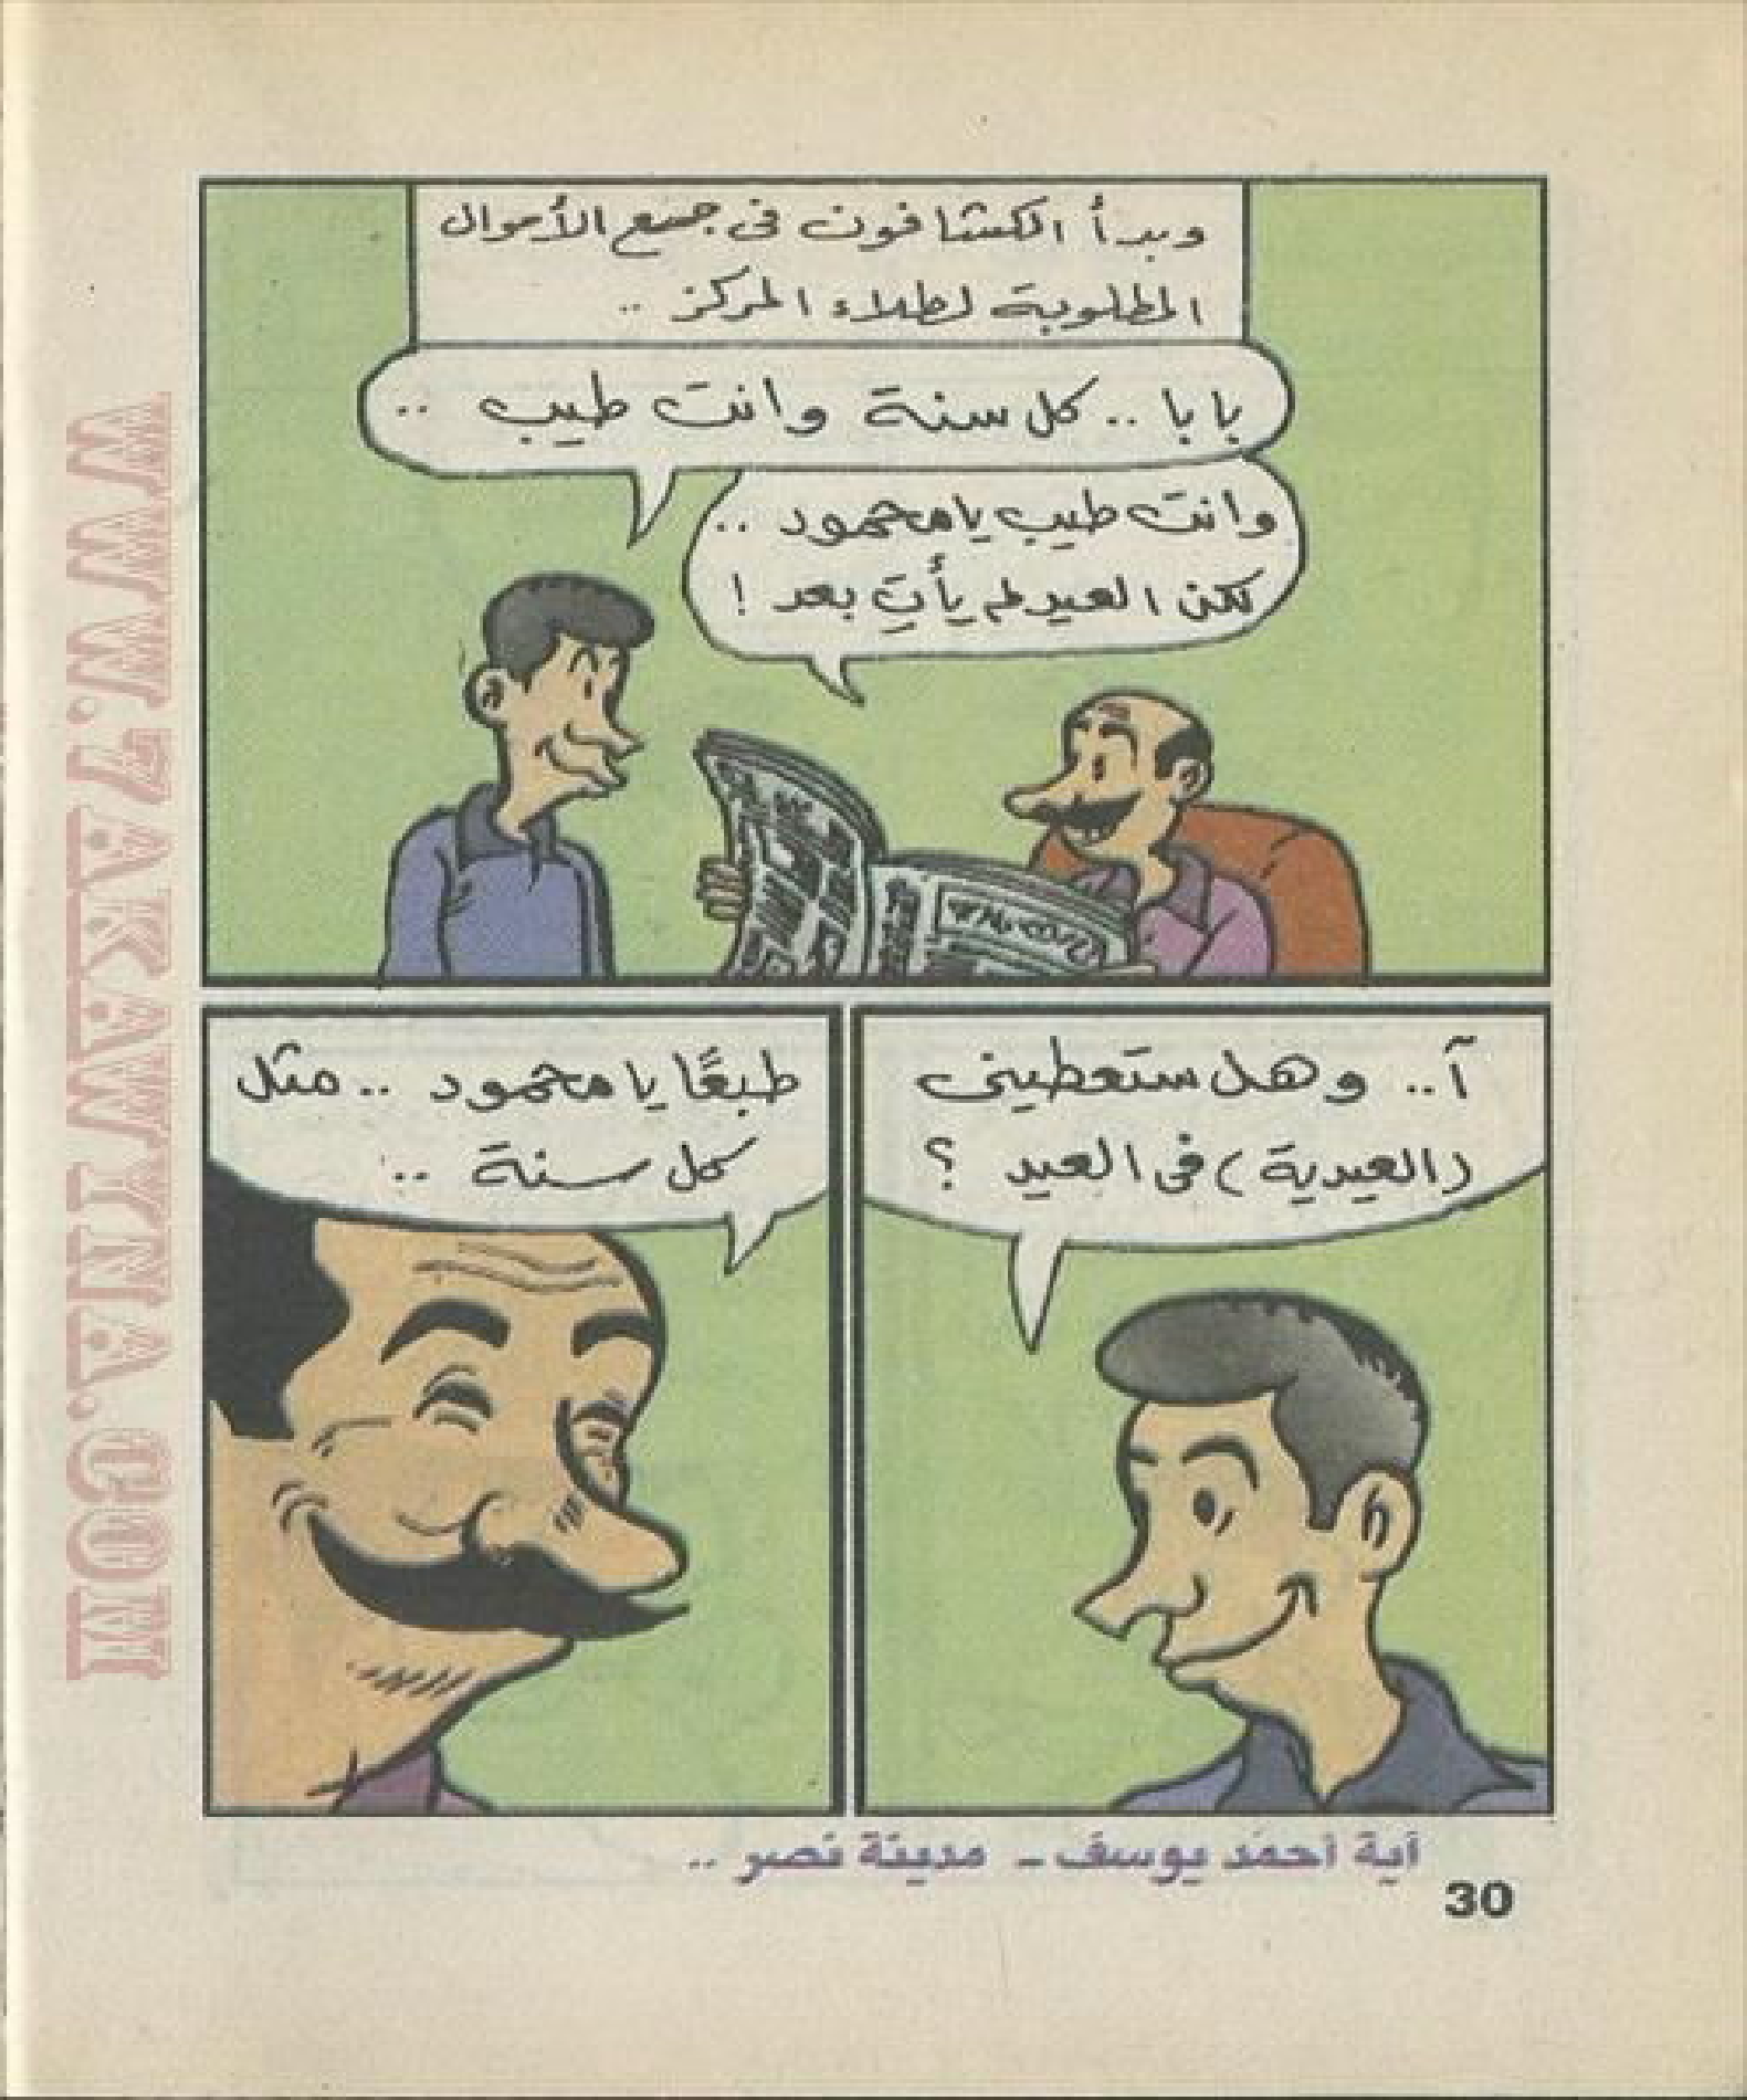 وبدأ الكشافون فى جمع الأموال
المطلوبة لطلاء المركز ..
بابا .. كل سنة وانت طيب ..
وانت طيب يا محمود ..
لكن العيد لم يأتِ بعد !
آ.. وهل ستعطينى
(العيدية) فى العيد ؟
طبعًا يا محمود .. مثل
كل سنة ..
آية أحمد يوسف - مدينة نصر ..
30
WWW.7AKAWYNA.COM